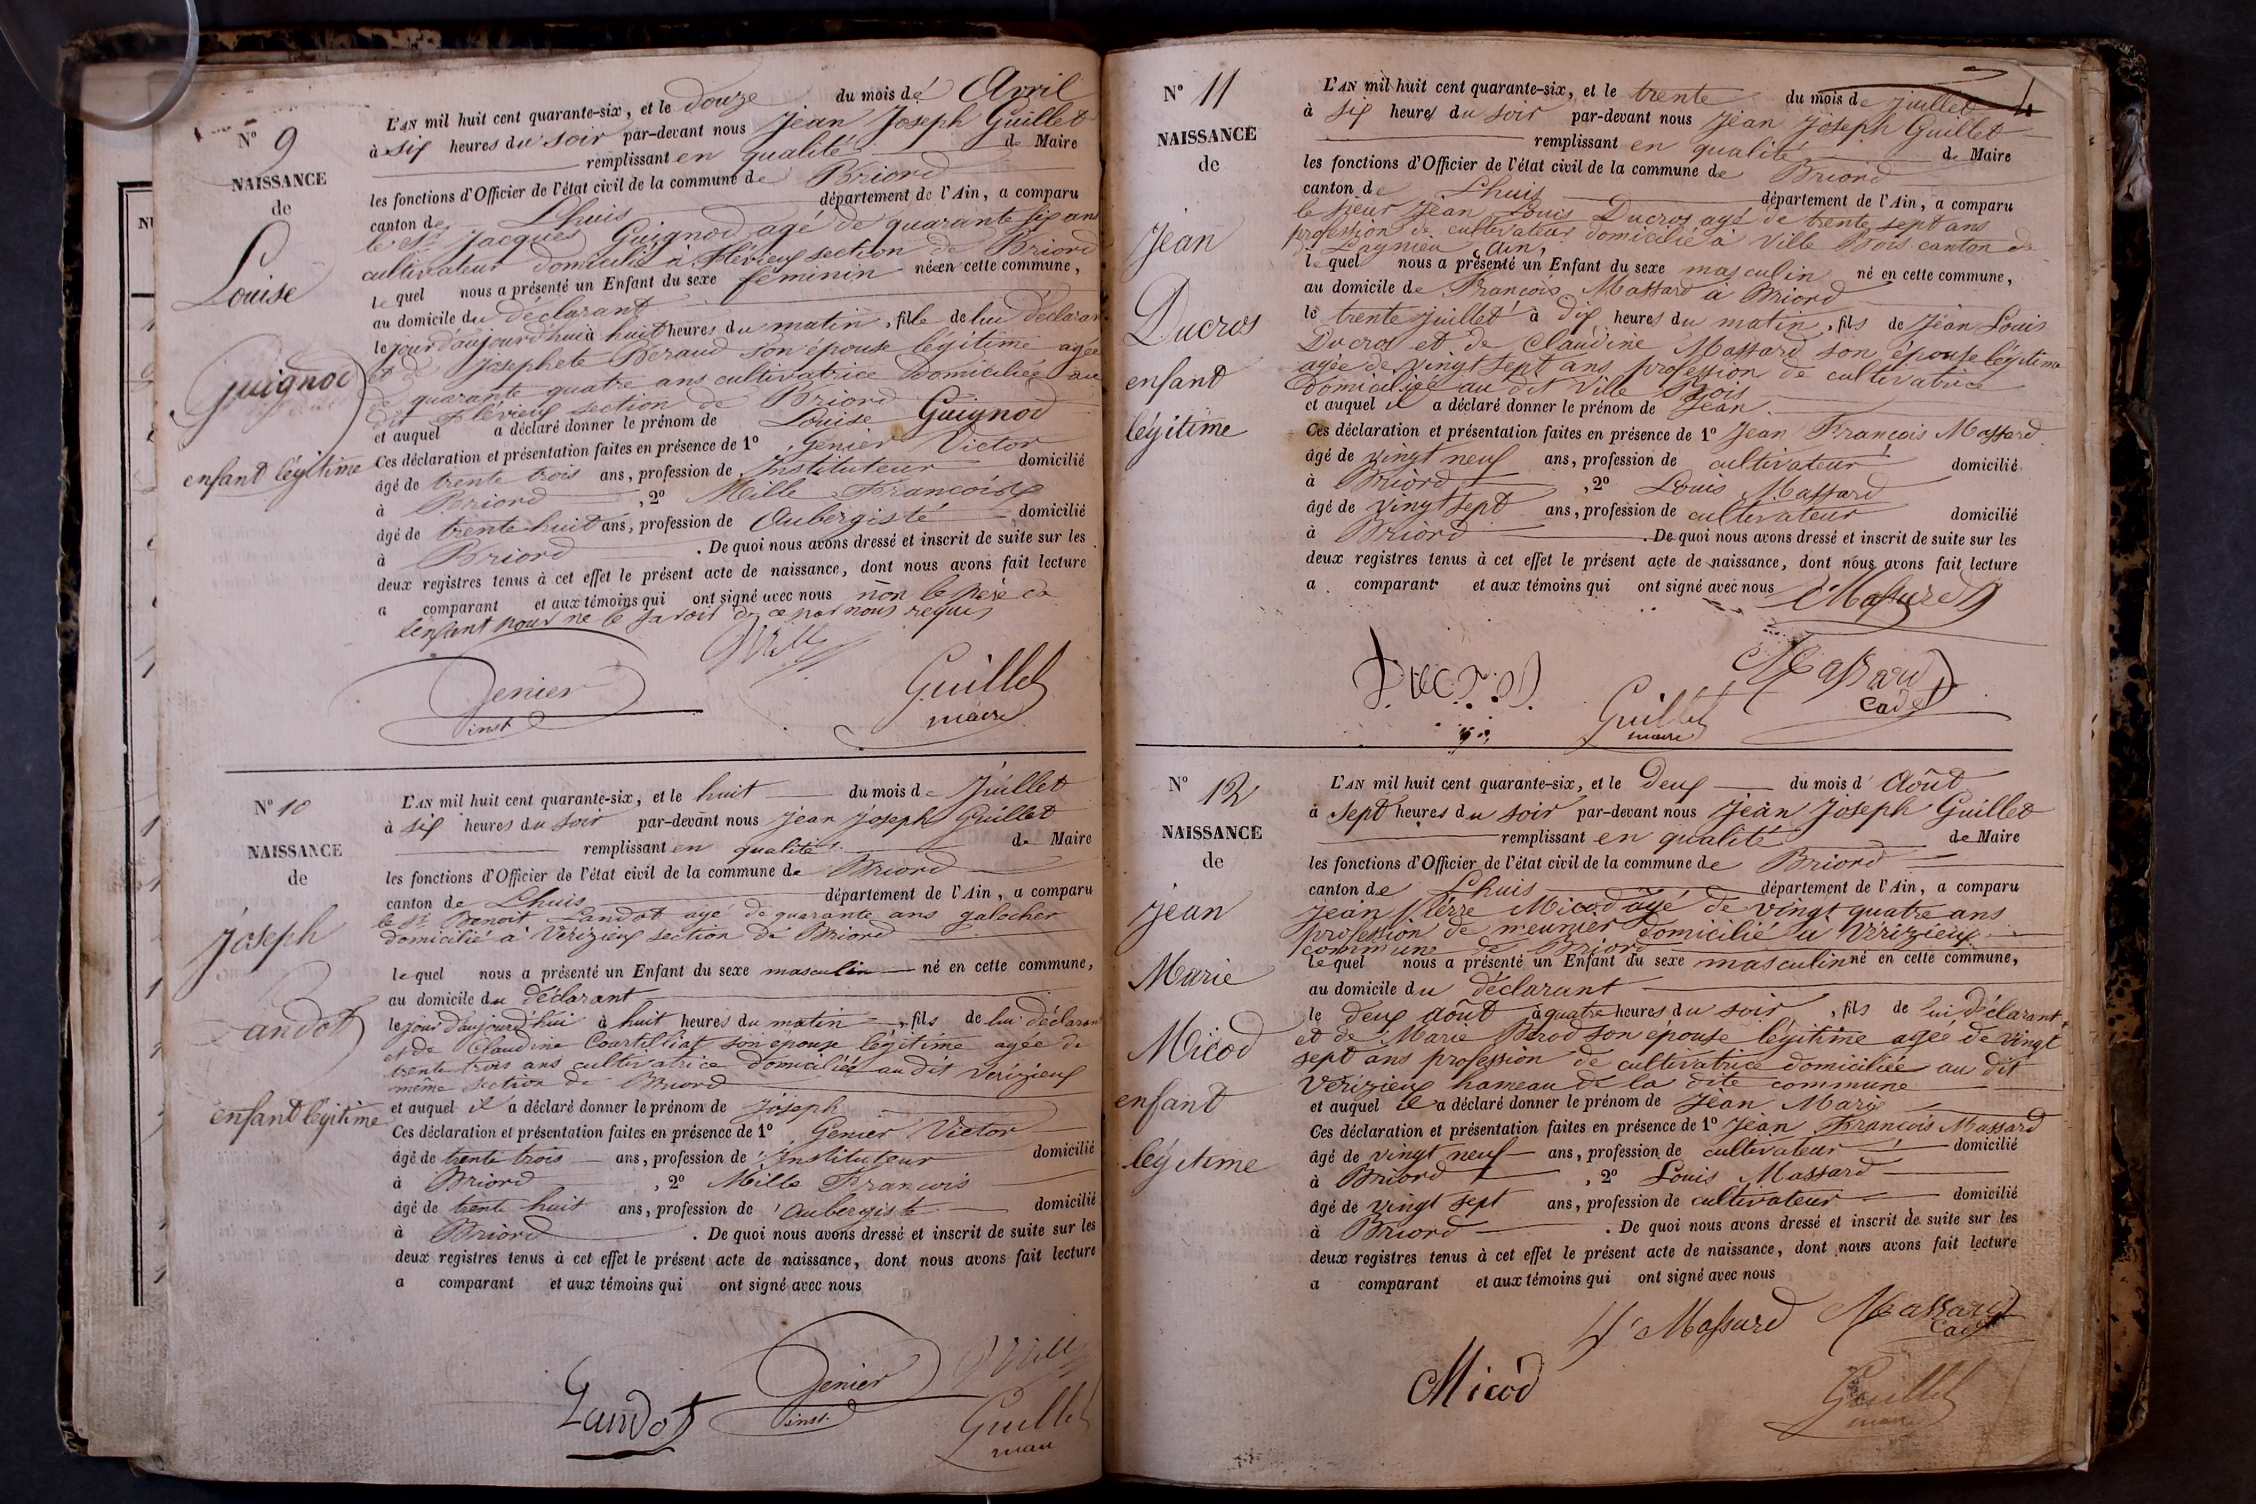 N° 9
NAISSANCE
de
Louise
Guignod
enfant légitime
L'AN mil huit cent quarante-six, et le douze du mois de Avril
à six heures du soir par-devant nous Jean Joseph Guillet
remplissant en qualité de Maire
les fonctions d'Officier de l'état civil de la commune de Briord
canton de Lhuis département de l'Ain, a comparu
le Sr Jacques Guignod agé de quarante six ans
cultivateur domicilié à Flévieux section de Briord
lequel nous a présenté un Enfant du sexe féminin née en cette commune,
au domicile du déclarant
le jour d'aujourd'hui à huit heures du matin, fille de lui déclarant
et de Josephete Beraud son épouse légitime agée
de quarante quatre ans cultivatrice domiciliée au
dit Flévieux section de Briord
et auquel a déclaré donner le prénom de Louise Guignod
Ces déclaration et présentation faites en présence de 1° Genier Victor
âgé de trente trois ans, profession de Instituteur domicilié
à Briord, 2° Mille François
âgé de trente huit ans, profession de Aubergiste domicilié
à Briord. De quoi nous avons dressé et inscrit de suite sur les
deux registres tenus à cet effet le présent acte de naissance, dont nous avons fait lecture
a comparant et aux témoins qui ont signé avec nous non le père de
l'enfant pour ne le savoir de ce par nous requis
Mille
Genier
inst
Guillet
maire
N° 10
NAISSANCE
de
Joseph
Landot
enfant légitime
L'AN mil huit cent quarante-six, et le huit du mois de Juillet
à six heures du soir par-devant nous Jean Joseph Guillet
remplissant en qualité de Maire
les fonctions d'Officier de l'état civil de la commune de Briord
canton de Lhuis département de l'Ain, a comparu
le Sr Benoit Landot agé de quarante ans galocher
domicilié à Verizieux section de Briord
lequel nous a présenté un Enfant du sexe masculin né en cette commune,
au domicile du déclarant
le jour d'aujourd'hui à huit heures du matin, fils de lui déclarant
et de Claudine Courtilliat son épouse légitime agée de
trente trois ans cultivatrice domiciliée au dit Verizieux
même section de Briord
et auquel il a déclaré donner le prénom de Joseph
Ces déclaration et présentation faites en présence de 1° Genier Victor
âgé de trente trois ans, profession de Instituteur domicilié
à Briord, 2° Mille François
âgé de trente huit ans, profession de Aubergiste domicilié
à Briord. De quoi nous avons dressé et inscrit de suite sur les
deux registres tenus à cet effet le présent acte de naissance, dont nous avons fait lecture
a comparant et aux témoins qui ont signé avec nous
Mille
Genier
inst.
Landot
Guillet
maire
N° 11
NAISSANCE
de
Jean
Ducros
enfant
légitime
L'AN mil huit cent quarante-six, et le trente du mois de juillet
à six heures du soir par-devant nous Jean Joseph Guillet
remplissant en qualité de Maire
les fonctions d'Officier de l'état civil de la commune de Briord
canton de Lhuis département de l'Ain, a comparu
le sieur Jean Louis Ducros agé de trente sept ans
profession de cultivateur domicilié à Ville Bois canton de
Lagnieu Ain,
lequel nous a présenté un Enfant du sexe masculin né en cette commune,
au domicile de François Massard à Briord
le trente juillet à dix heures du matin, fils de Jean Louis
Ducros et de Claudine Massard son épouse légitime
agée de vingt sept ans profession de cultivatrice
domiciliée au dit Ville Bois
et auquel il a déclaré donner le prénom de Jean
Ces déclaration et présentation faites en présence de 1° Jean François Massard
âgé de vingt neuf ans, profession de cultivateur domicilié
à Briord, 2° Louis Massard
âgé de vingt sept ans, profession de cultivateur domicilié
à Briord. De quoi nous avons dressé et inscrit de suite sur les
deux registres tenus à cet effet le présent acte de naissance, dont nous avons fait lecture
a comparant et aux témoins qui ont signé avec nous Massard
Ducros
Massard
Cadet
Guillet
maire
N° 12
NAISSANCE
de
Jean
Marie
Micod
enfant
légitime
L'AN mil huit cent quarante-six, et le Deux du mois d'Août
à sept heures du soir par-devant nous Jean Joseph Guillet
remplissant en qualité de Maire
les fonctions d'Officier de l'état civil de la commune de Briord
canton de Lhuis département de l'Ain, a comparu
Jean Pierre Micod âgé de vingt quatre ans
profession de meunier domicilié à Verizieux
commune de Briord
lequel nous a présenté un Enfant du sexe masculin né en cette commune,
au domicile du déclarant
le deux août à quatre heures du soir, fils de lui déclarant
et de Marie Brod son épouse légitime agée de vingt
sept ans profession de cultivatrice domiciliée au dit
Verizieux hameau de la dite commune
et auquel il a déclaré donner le prénom de Jean Marie
Ces déclaration et présentation faites en présence de 1° Jean François Massard
âgé de vingt neuf ans, profession de cultivateur domicilié
à Briord, 2° Louis Massard
âgé de vingt sept ans, profession de cultivateur domicilié
à Briord. De quoi nous avons dressé et inscrit de suite sur les
deux registres tenus à cet effet le présent acte de naissance, dont nous avons fait lecture
a comparant et aux témoins qui ont signé avec nous
Massard Massard
Cadet
Micod
Guillet
maire